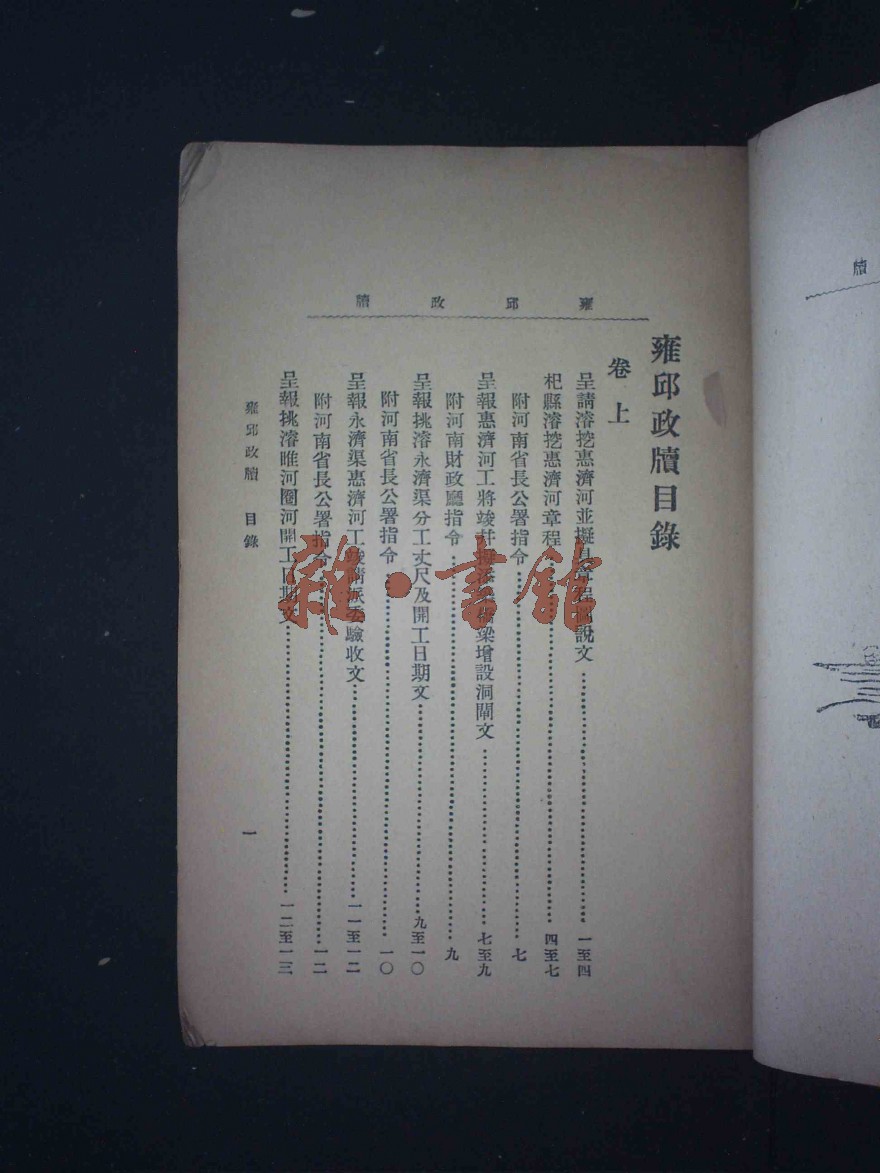 雍邱政牘
雍邱政牘目錄
卷上
呈請濬挖惠濟河並擬具章程圖說文 一至四
杞縣濬挖惠濟河章程 四至七
附河南省長公署指令 七
呈報惠濟河工將竣并 橋梁增設洞閘文 七至九
附河南財政廳指令 九
呈報挑濬永濟渠分工丈尺及開工日期文 九至一〇
附河南省長公署指令 一〇
呈報永濟渠惠濟河工竣請派委驗收文 一一至一二
附河南省長公署指令 一二
呈報挑濬睢河圈河開工日期文 一二至一三
雍邱政牘 目錄
一
牘
雜·書館